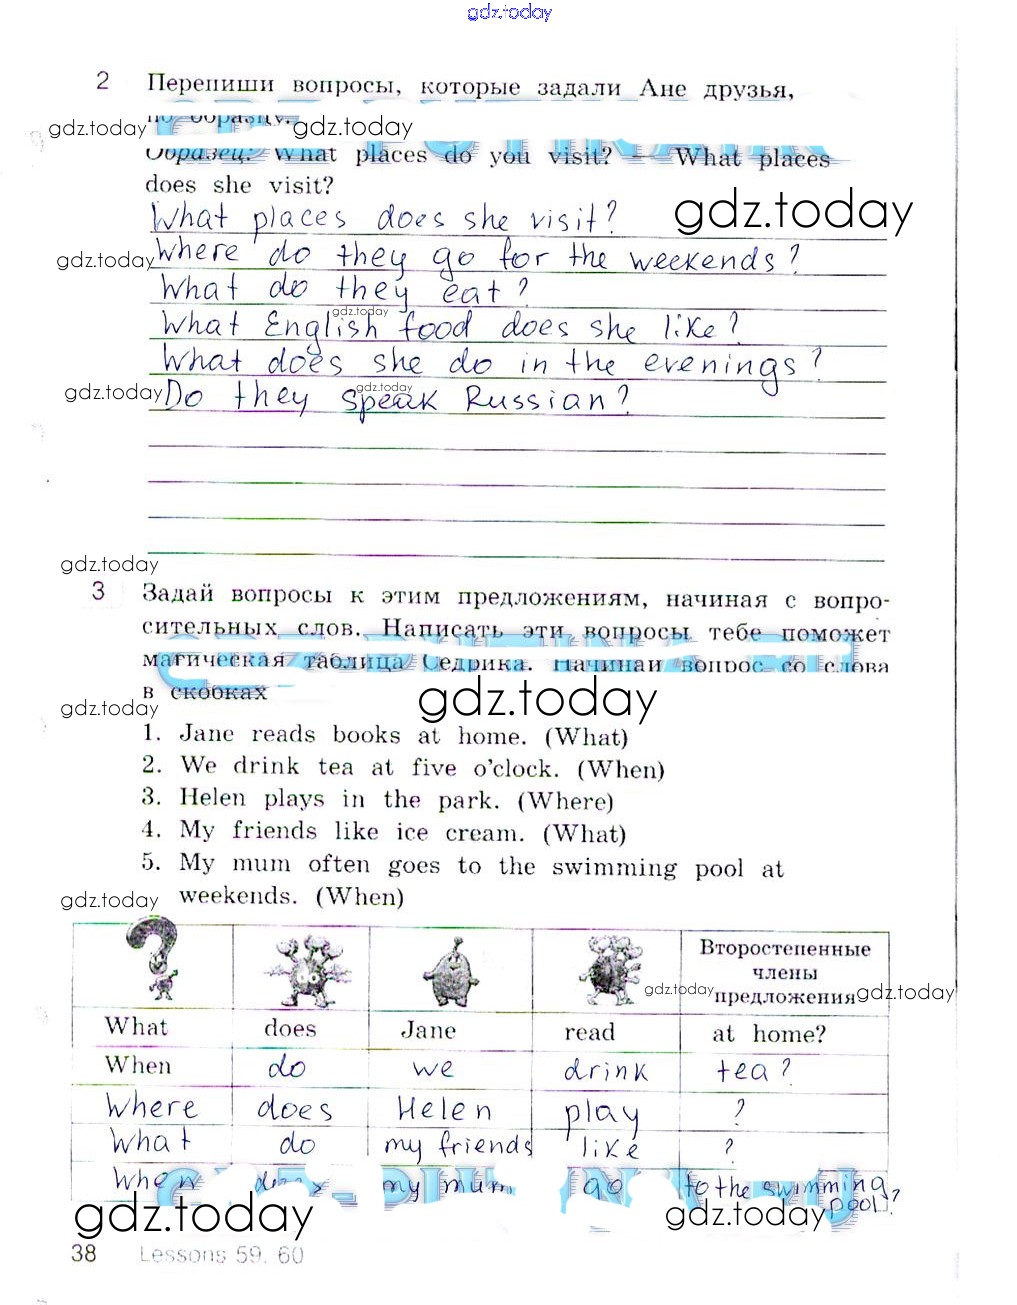 gdz.today
2 Перепиши вопросы, которые задали Ане друзья,
gdz.today по образцу. gdz.today
Образец: What places do you visit? — What places
does she visit?
What places does she visit? gdz.today
gdz.today Where do they go for the weekends?
What do they eat?
gdz.today
What English food does she like?
What does she do in the evenings?
gdz.today gdz.today
Do they speak Russian?
gdz.today
3 Задай вопросы к этим предложениям, начиная с вопро-
сительных слов. Написать эти вопросы тебе поможет
магическая таблица Седрика. Начинай вопрос со слова
в скобках gdz.today
gdz.today
1. Jane reads books at home. (What)
2. We drink tea at five o'clock. (When)
3. Helen plays in the park. (Where)
4. My friends like ice cream. (What)
5. My mum often goes to the swimming pool at
gdz.today weekends. (When)
Второстепенные
члены
gdz.today предложения gdz.today
What does Jane read at home?
When do we drink tea?
Where does Helen play ?
What do my friends like ?
When does my mum go to the swimming
pool?
gdz.today gdz.today
38 Lessons 59, 60